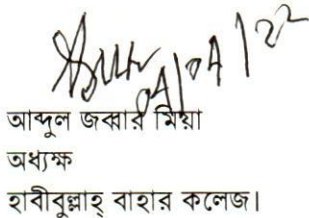 04/04/22
আব্দুল জব্বার মিয়া
অধ্যক্ষ
হাবীবুল্লাহ্ বাহার কলেজ।